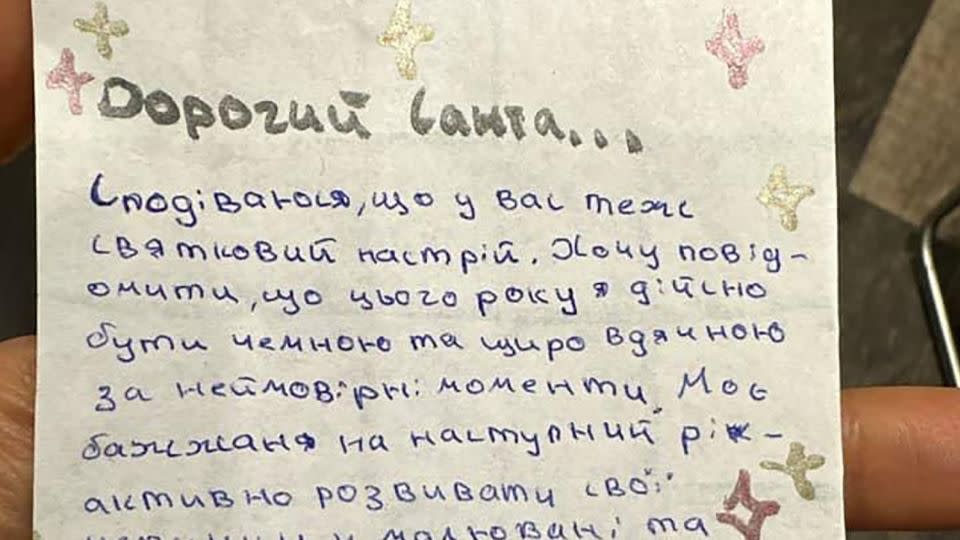 Дорогий Санта...
Сподіваюся, що у вас теж
святковий настрій. Хочу повід-
омити, що цього року я дійсно
бути чемною та щиро вдячною
за неймовірні моменти. Моє
бажжаня на наступний рік-
активно розвивати свої
та